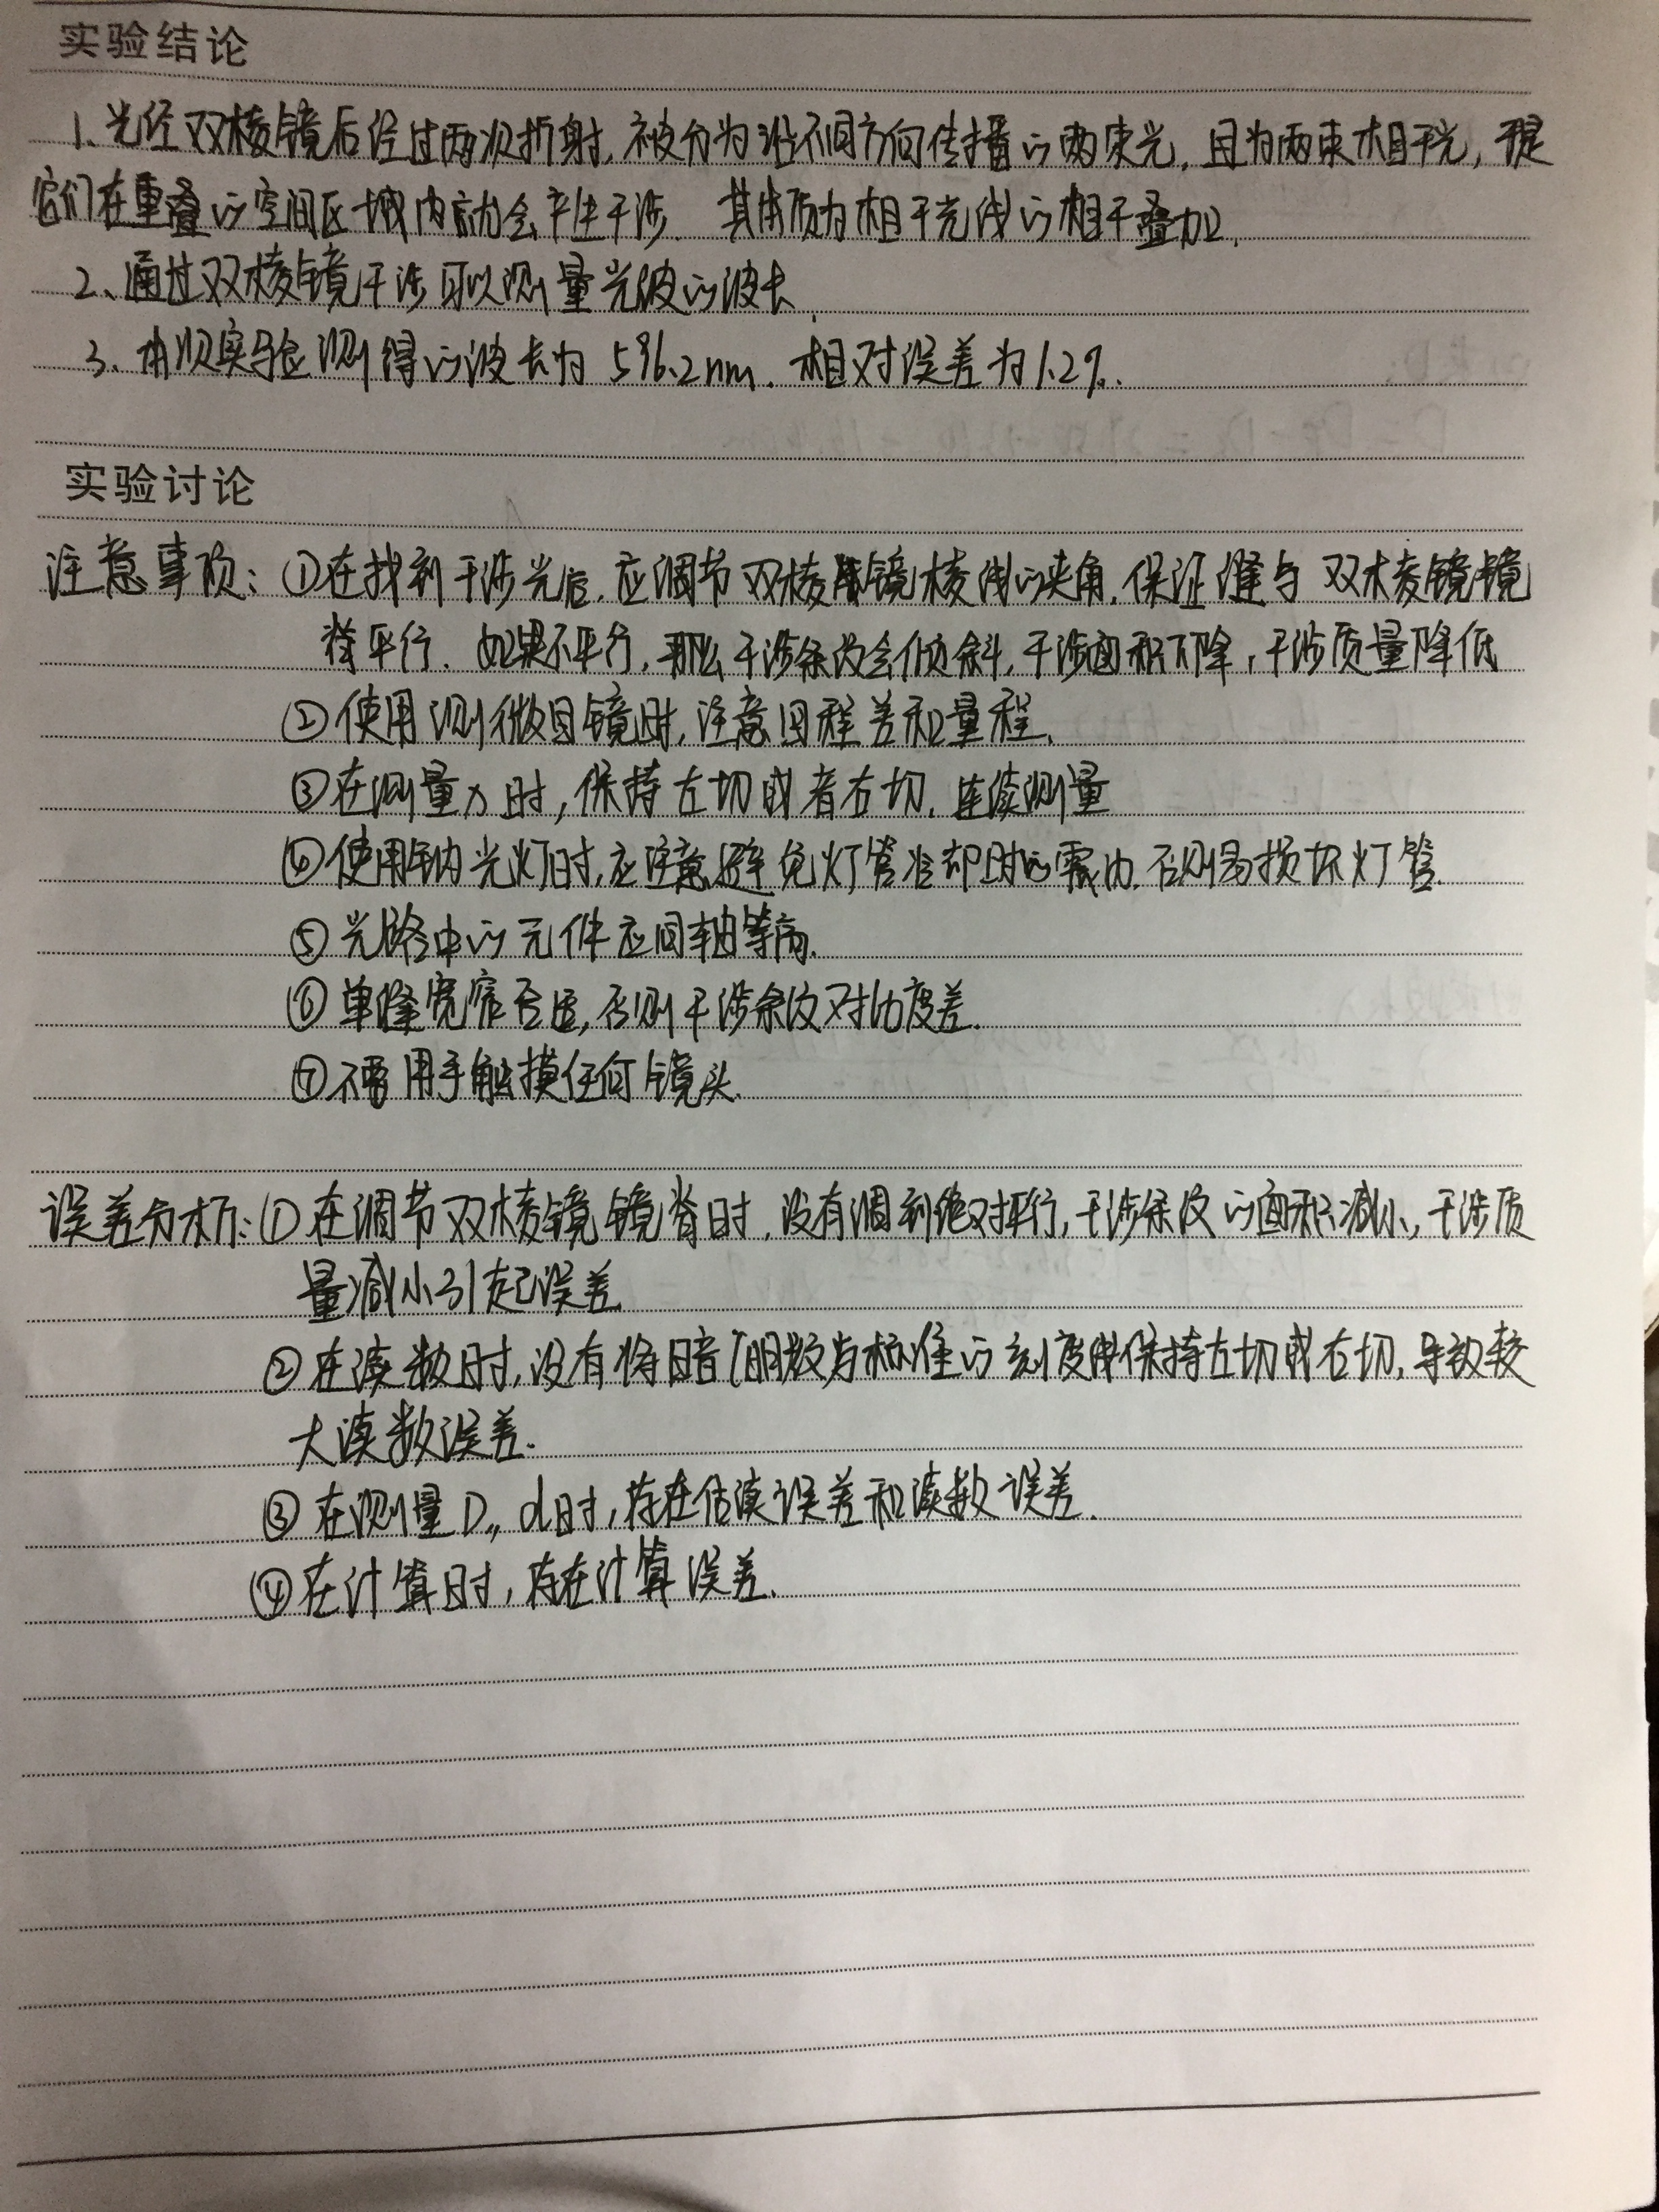 实验结论
1、光经双棱镜后经过两次折射,被分为沿不同方向传播的两束光,且为两束相干光,于是
它们在重叠的空间区域内就会产生干涉.其本质为相干光线的相干叠加.
2、通过双棱镜干涉可以测量光波的波长.
3、本次实验测得的波长为596.2nm.相对误差为1.2%.
实验讨论
注意事项:①在找到干涉光后,应调节双棱镜棱线的夹角,保证缝与双棱镜镜
脊平行.如果不平行,那么干涉条纹会倾斜,干涉面积下降,干涉质量降低
②使用测微目镜时,注意回程差和量程.
③在测量x时,保持左切或者右切.连续测量
④使用钠光灯时,应注意避免灯管冷却时的震动.否则易损坏灯管.
⑤光路中的元件应同轴等高.
⑥单缝宽窄合适,否则干涉条纹对比度差.
⑦不要用手触摸任何镜头.
误差分析:①在调节双棱镜镜脊时,没有调到绝对平行,干涉条纹的面积减小,干涉质
量减小引起误差.
②在读数时,没有将暗(明纹)与标准的刻度保持左切或右切,导致较
大读数误差.
③在测量D,,d时,存在估读误差和读数误差.
④在计算时,存在计算误差.